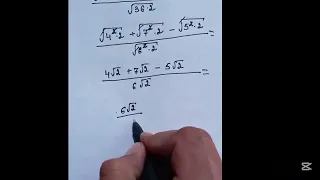 √36·2
√4²·2 + √7²·2 − √5²·2 =
√6²·2
4√2 + 7√2 − 5√2 =
6√2
6√2